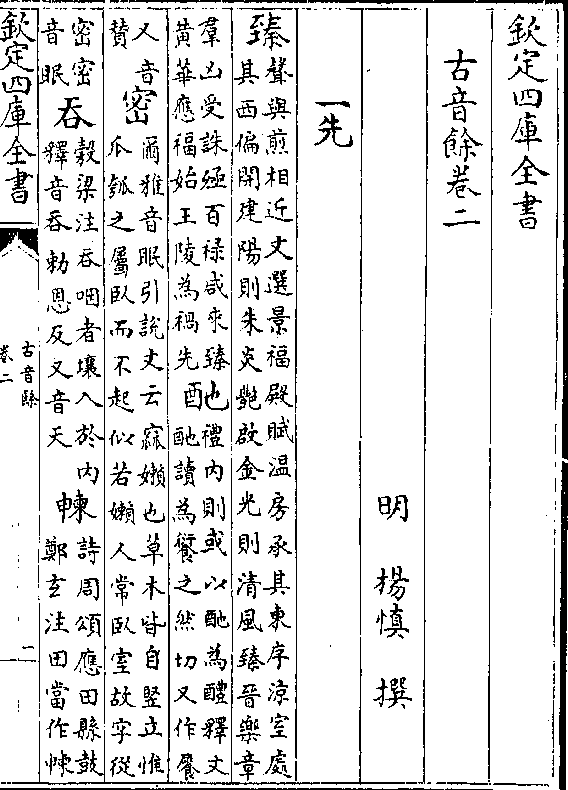 欽定四庫全書
古音餘卷二
明 楊慎 撰
一先
臻 聲與煎相近文選景福殿賦温房承其東序涼室處
其西偏開建陽則朱炎艷啟金光則清風臻晉樂章
羣凶受誅殛百禄咸來臻
黄華應福始王陵為禍先 酏 禮内則或以酏為醴釋文
酏讀為餰之然切又作餐
又音
贊 密 爾雅音眠引説文云寐嬾也草木皆自竪立惟
瓜瓠之屬臥而不起似若嬾人常臥室故字從
密密
音眠 吞 穀梁注吞咽者壤入於内
釋音吞勅恩反又音天 朄 詩周頌應田縣鼓
鄭玄注田當作朄
欽定四庫全書
古音餘
卷二
二